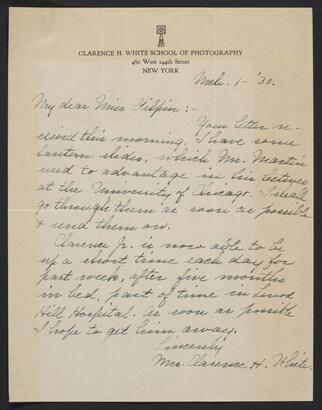 CLARENCE H. WHITE SCHOOL OF PHOTOGRAPHY
460 West 144th Street
NEW YORK
Mch. 1- '30.
My dear Miss Gilpin:-
Your letter re-
ceived this morning. I have some
lantern slides, which Mr. Martin
used to advantage in his lectures
at the University of Chicago. I shall
go through them as soon as possible
& send them on.
Clarence Jr. is now able to be
up a short time each day for
past week, after five months
in bed, part of time in Lenox
Hill Hospital. As soon as possible
I hope to get him away.
Sincerely
Mrs. Clarence H. White.